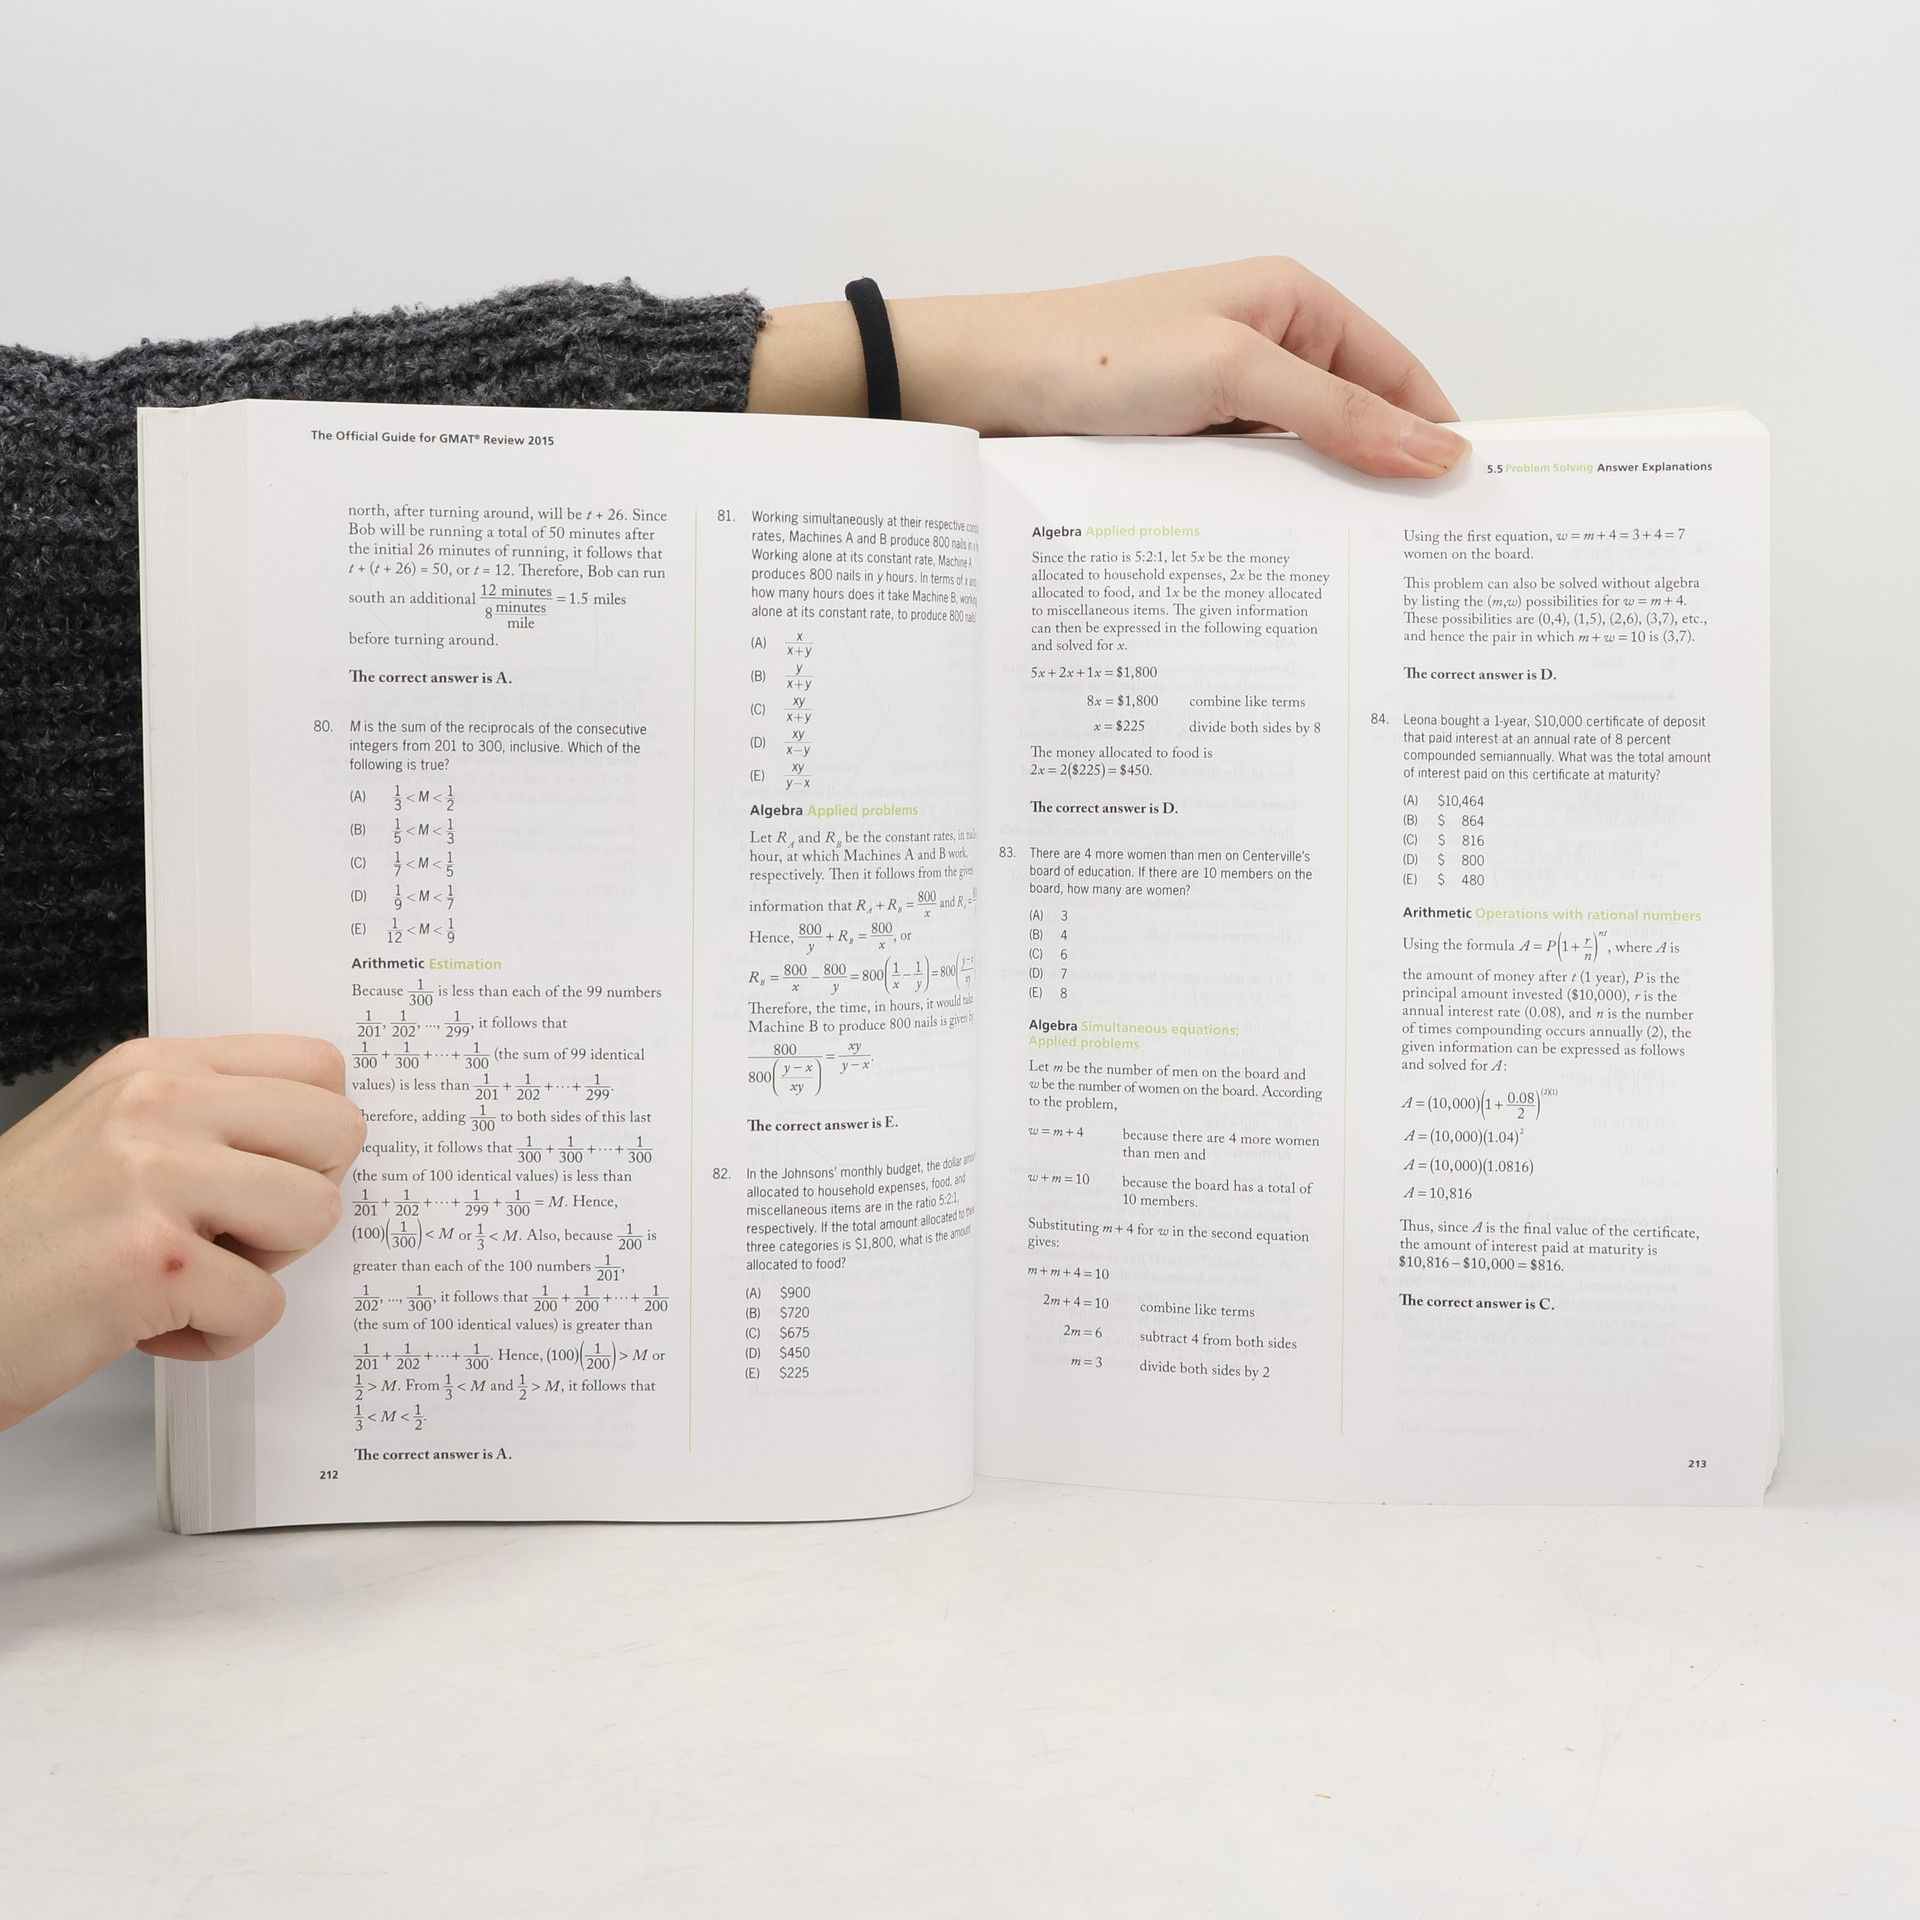 The Official Guide for GMAT® Review 2015
north, after turning around, will be t + 26. Since
Bob will be running a total of 50 minutes after
the initial 26 minutes of running, it follows that
t + (t + 26) = 50, or t = 12. Therefore, Bob can run
south an additional 12 minutes / 8 minutes/mile = 1.5 miles
before turning around.
The correct answer is A.
80. M is the sum of the reciprocals of the consecutive
integers from 201 to 300, inclusive. Which of the
following is true?
(A) 1/3 < M < 1/2
(B) 1/5 < M < 1/3
(C) 1/7 < M < 1/5
(D) 1/9 < M < 1/7
(E) 1/12 < M < 1/9
Arithmetic Estimation
Because 1/300 is less than each of the 99 numbers
1/201, 1/202, ..., 1/299, it follows that
1/300 + 1/300 + ··· + 1/300 (the sum of 99 identical
values) is less than 1/201 + 1/202 + ··· + 1/299.
herefore, adding 1/300 to both sides of this last
equality, it follows that 1/300 + 1/300 + ··· + 1/300
(the sum of 100 identical values) is less than
1/201 + 1/202 + ··· + 1/299 + 1/300 = M. Hence,
(100)(1/300) < M or 1/3 < M. Also, because 1/200 is
greater than each of the 100 numbers 1/201,
1/202, ..., 1/300, it follows that 1/200 + 1/200 + ··· + 1/200
(the sum of 100 identical values) is greater than
1/201 + 1/202 + ··· + 1/300. Hence, (100)(1/200) > M or
1/2 > M. From 1/3 < M and 1/2 > M, it follows that
1/3 < M < 1/2.
The correct answer is A.
212
81. Working simultaneously at their respective
rates, Machines A and B produce 800 nails in
Working alone at its constant rate, Machine A
produces 800 nails in y hours. In terms of x and
how many hours does it take Machine B,
alone at its constant rate, to produce 800
(A) x/(x+y)
(B) y/(x+y)
(C) xy/(x+y)
(D) xy/(x−y)
(E) xy/(y−x)
Algebra Applied problems
Let R_A and R_B be the constant rates, in
hour, at which Machines A and B work,
respectively. Then it follows from the given
information that R_A + R_B = 800/x and
Hence, 800/y + R_B = 800/x, or
R_B = 800/x − 800/y = 800(1/x − 1/y) = 800
Therefore, the time, in hours, it would take
Machine B to produce 800 nails is given by
800 / 800((y−x)/xy) = xy/(y−x).
The correct answer is E.
82. In the Johnsons' monthly budget, the dollar
allocated to household expenses, food, and
miscellaneous items are in the ratio 5:2:1,
respectively. If the total amount allocated to
three categories is $1,800, what is the amount
allocated to food?
(A) $900
(B) $720
(C) $675
(D) $450
(E) $225
5.5 Problem Solving Answer Explanations
Algebra Applied problems
Since the ratio is 5:2:1, let 5x be the money
allocated to household expenses, 2x be the money
allocated to food, and 1x be the money allocated
to miscellaneous items. The given information
can then be expressed in the following equation
and solved for x.
5x + 2x + 1x = $1,800
8x = $1,800 combine like terms
x = $225 divide both sides by 8
The money allocated to food is
2x = 2($225) = $450.
The correct answer is D.
83. There are 4 more women than men on Centerville's
board of education. If there are 10 members on the
board, how many are women?
(A) 3
(B) 4
(C) 6
(D) 7
(E) 8
Algebra Simultaneous equations;
Applied problems
Let m be the number of men on the board and
w be the number of women on the board. According
to the problem,
w = m + 4 because there are 4 more women
than men and
w + m = 10 because the board has a total of
10 members.
Substituting m + 4 for w in the second equation
gives:
m + m + 4 = 10
2m + 4 = 10 combine like terms
2m = 6 subtract 4 from both sides
m = 3 divide both sides by 2
Using the first equation, w = m + 4 = 3 + 4 = 7
women on the board.
This problem can also be solved without algebra
by listing the (m,w) possibilities for w = m + 4.
These possibilities are (0,4), (1,5), (2,6), (3,7), etc.,
and hence the pair in which m + w = 10 is (3,7).
The correct answer is D.
84. Leona bought a 1-year, $10,000 certificate of deposit
that paid interest at an annual rate of 8 percent
compounded semiannually. What was the total amount
of interest paid on this certificate at maturity?
(A) $10,464
(B) $ 864
(C) $ 816
(D) $ 800
(E) $ 480
Arithmetic Operations with rational numbers
Using the formula A = P(1 + r/n)^nt, where A is
the amount of money after t (1 year), P is the
principal amount invested ($10,000), r is the
annual interest rate (0.08), and n is the number
of times compounding occurs annually (2), the
given information can be expressed as follows
and solved for A:
A = (10,000)(1 + 0.08/2)^(2)(1)
A = (10,000)(1.04)²
A = (10,000)(1.0816)
A = 10,816
Thus, since A is the final value of the certificate,
the amount of interest paid at maturity is
$10,816 − $10,000 = $816.
The correct answer is C.
213